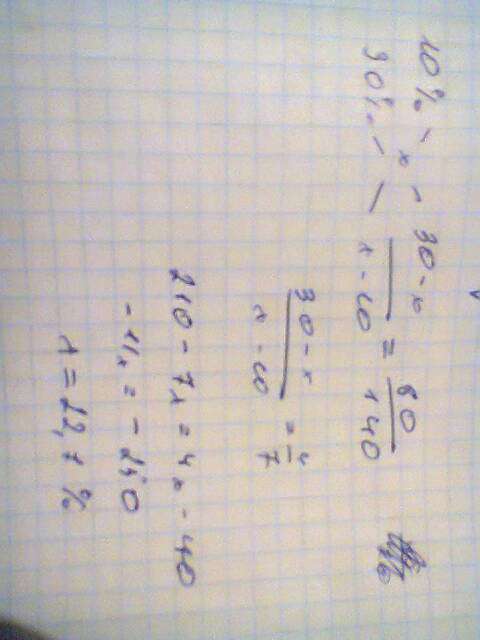 10% \ / 30-x
x = 80
30% / \ x-10 140
30-x
x-10 = 4/7
210-7x=4x-40
-11x=-250
x=22,7%